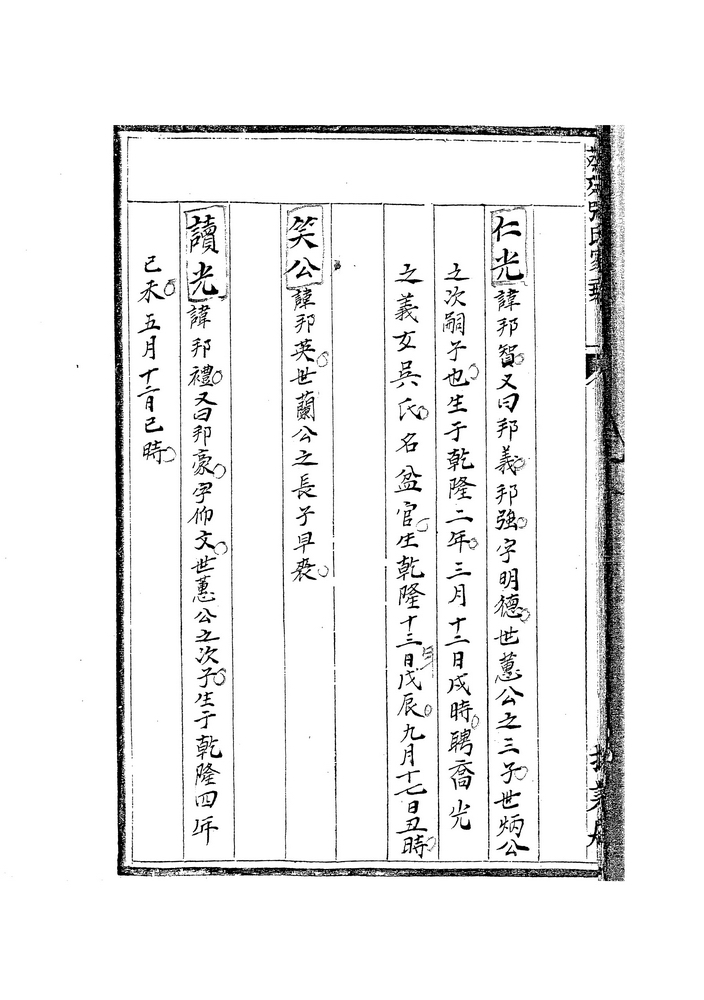 仁光諱邦智又曰邦義邦強字明德世蕙公之三子世炳公
之次嗣子也生于乾隆二年三月十二日戌時聘喬光
之義女吳氏名盆官生乾隆十三年日戊辰九月十七日丑時
笑公諱邦英世蘭公之長子早喪
讀光諱邦禮又曰邦豪字仰文世蕙公之次子生于乾隆四年
己未五月十二日巳時